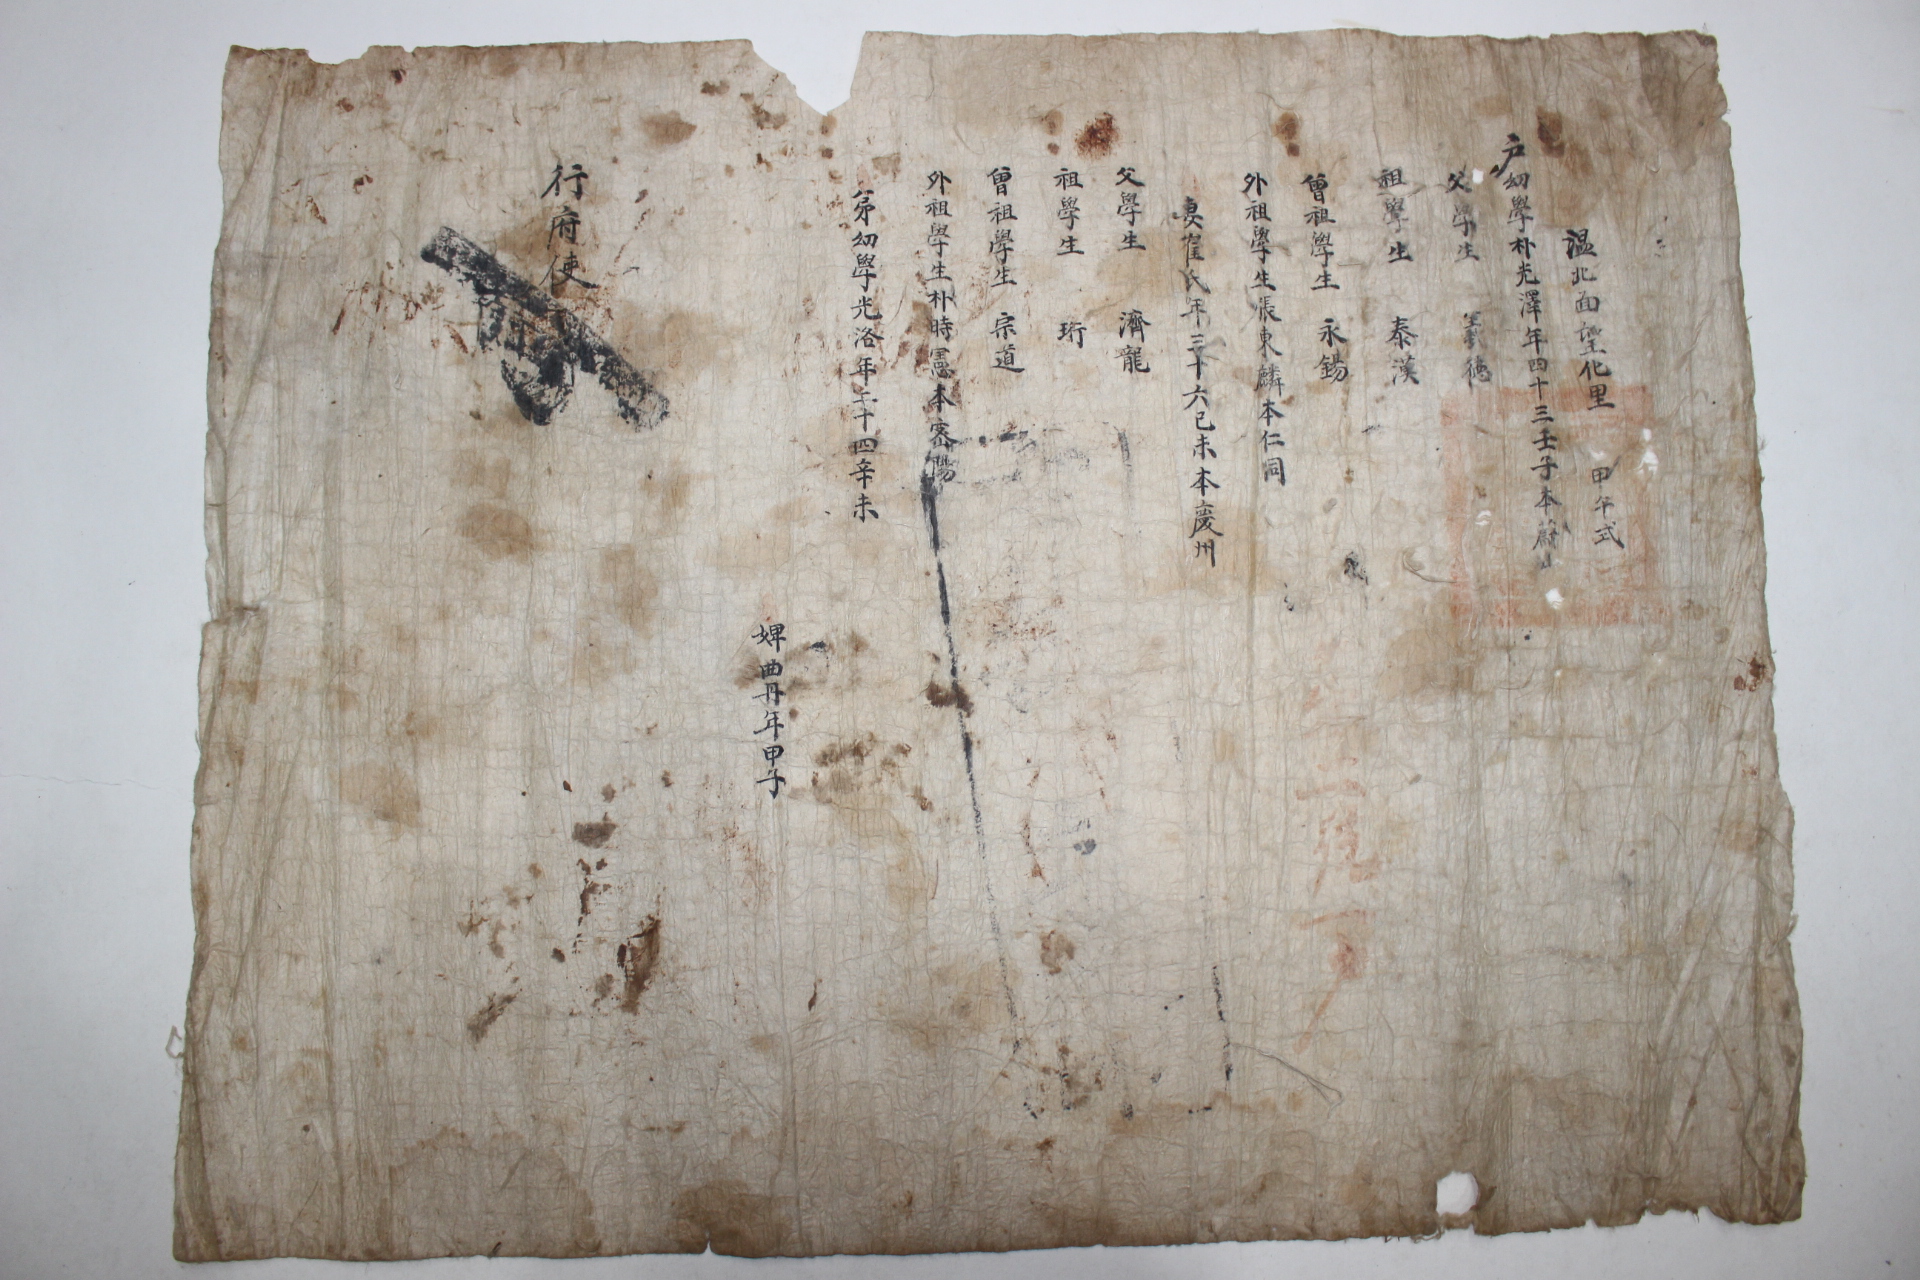 温北面望化里 甲午式
戶幼學朴光澤年四十三壬子本蔚山
父學生 義德
祖學生 泰漢
曾祖學生 永錫
外祖學生張東麟本仁同
妻崔氏年三十六己未本慶州
父學生 濟龍
祖學生 珩
曾祖學生 宗道
外祖學生朴時憲本密陽
弟幼學光洛年二十四辛未
婢曲丹年甲子
行府使